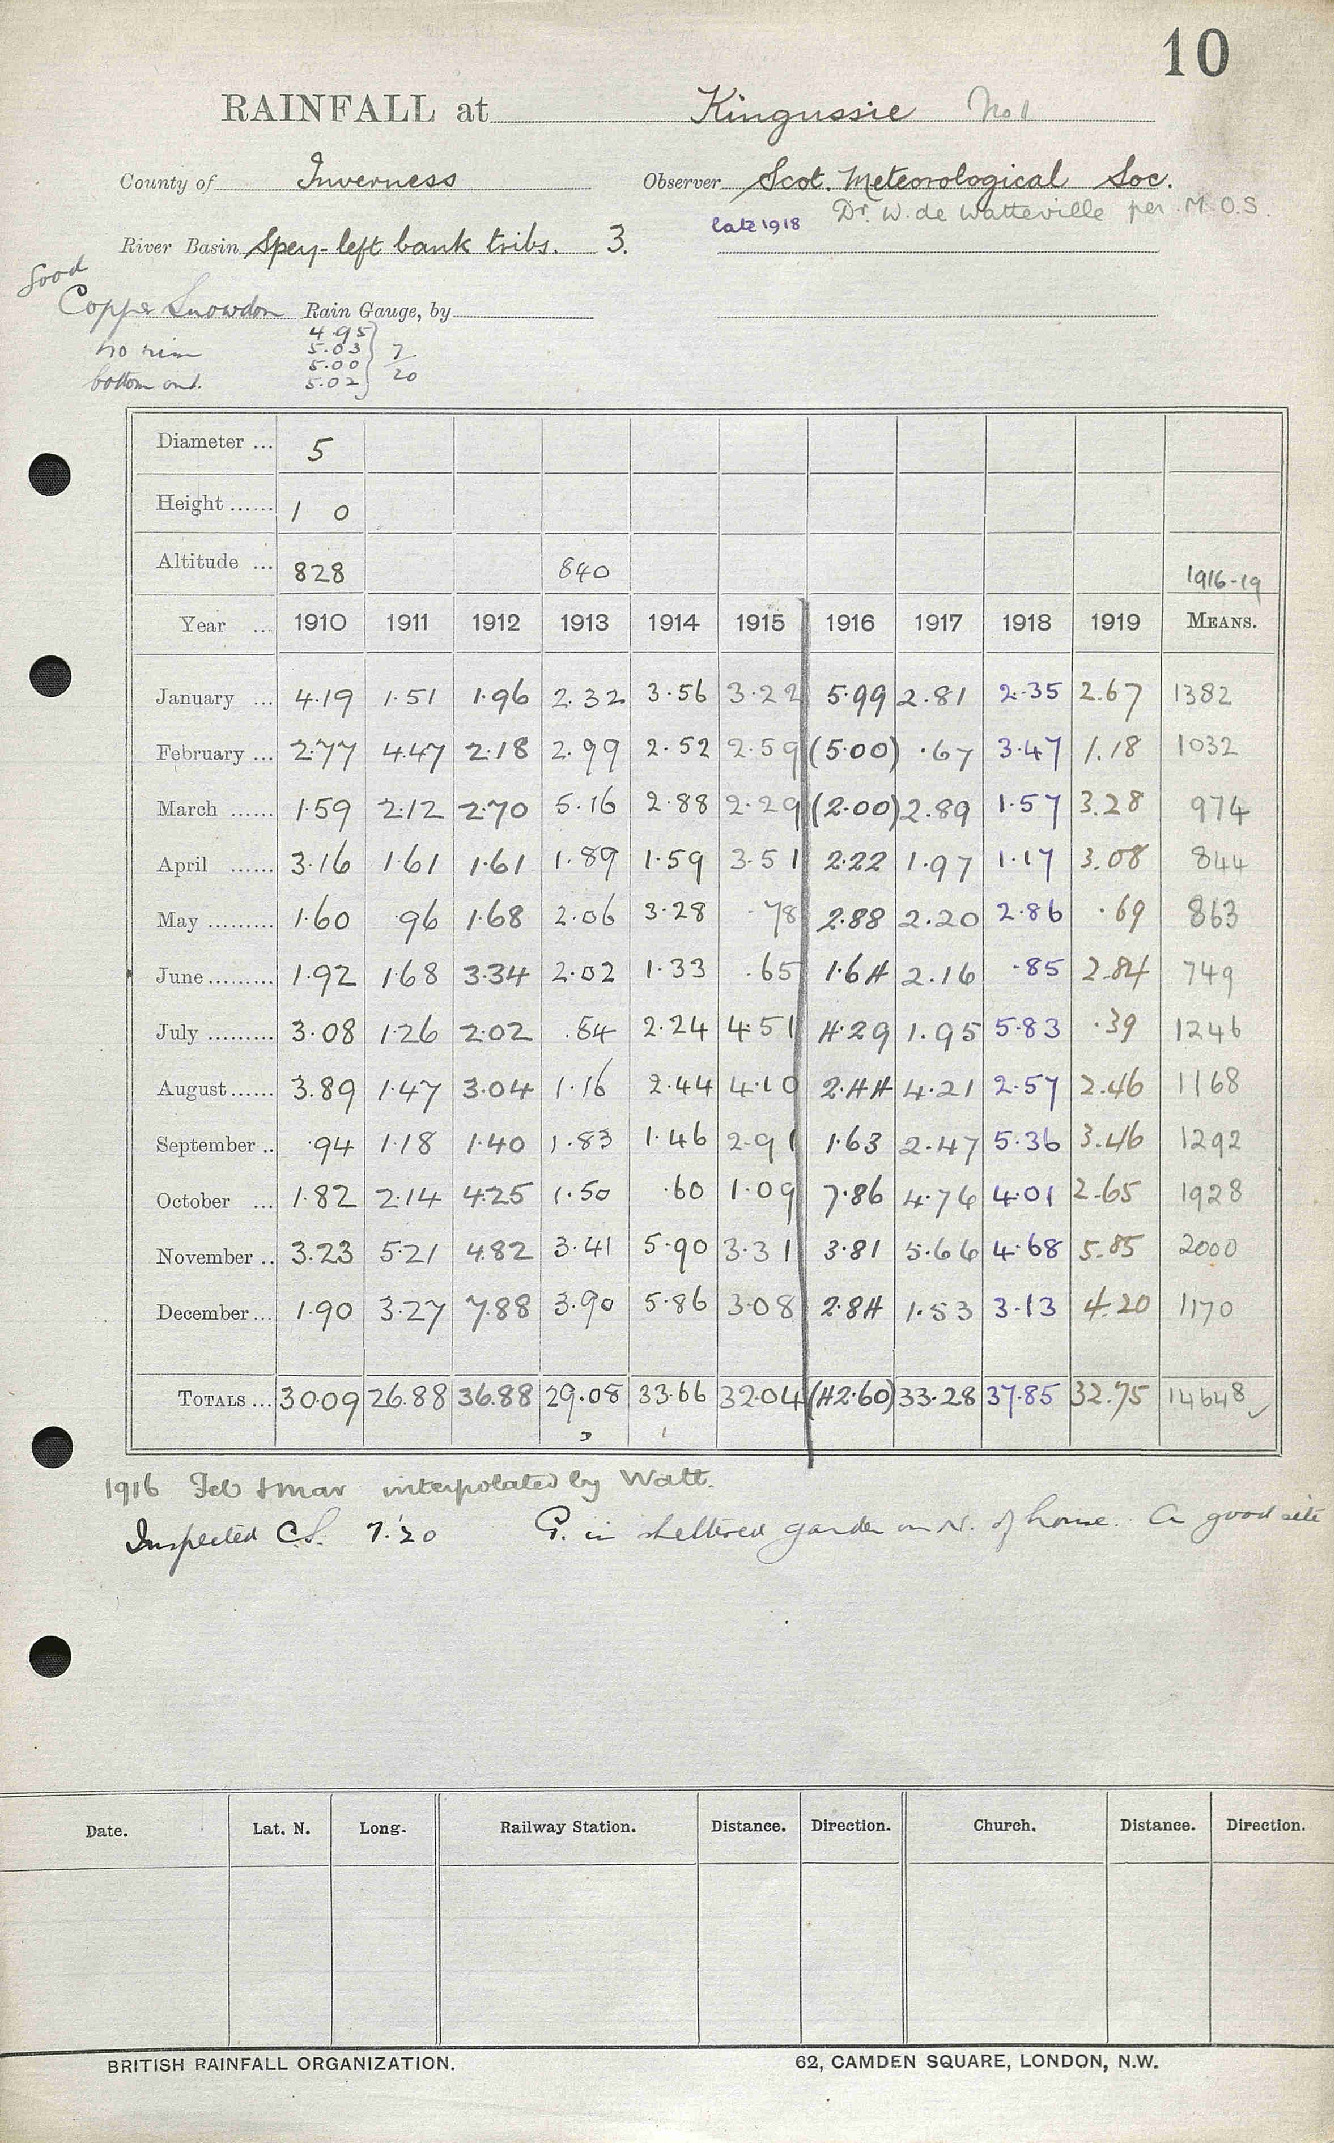 10
RAINFALL at Kingussie No 1
County of Inverness Observer Scot. Meteorological Soc.
late 1918 Dr. W. de Watteville per M.O.S.
River Basin Spey-left bank tribs. 3.
Good
Copper Snowdon Rain Gauge, by
no rim
bottom out.
4.95
5.03
5.00
5.02
7/20
Diameter ... 5
Height ...... 1 0
Altitude ... 828 840 1916-19
Year ... 1910 1911 1912 1913 1914 1915 1916 1917 1918 1919 MEANS.
January ... 4.19 1.51 1.96 2.32 3.56 3.22 5.99 2.81 2.35 2.67 1382
February ... 2.77 4.47 2.18 2.99 2.52 2.59 (5.00) .67 3.47 1.18 1032
March ...... 1.59 2.12 2.70 5.16 2.88 2.29 (2.00) 2.89 1.57 3.28 974
April ...... 3.16 1.61 1.61 1.89 1.59 3.51 2.22 1.97 1.17 3.08 844
May ......... 1.60 .96 1.68 2.06 3.28 .78 2.88 2.20 2.86 .69 863
June ......... 1.92 1.68 3.34 2.02 1.33 .65 1.64 2.16 .85 2.84 749
July ......... 3.08 1.26 2.02 .84 2.24 4.51 4.29 1.95 5.83 .39 1246
August ...... 3.89 1.47 3.04 1.16 2.44 4.10 2.44 4.21 2.57 2.46 1168
September .. .94 1.18 1.40 1.83 1.46 2.91 1.63 2.47 5.36 3.46 1292
October ... 1.82 2.14 4.25 1.50 .60 1.09 7.86 4.76 4.01 2.65 1928
November .. 3.23 5.21 4.82 3.41 5.90 3.31 3.81 5.66 4.68 5.85 2000
December ... 1.90 3.27 7.88 3.90 5.86 3.08 2.84 1.53 3.13 4.20 1170
TOTALS ... 30.09 26.88 36.88 29.08 33.66 32.04 (42.60) 33.28 37.85 32.75 14648 ✓
1916 Feb & Mar interpolated by Watt.
Inspected C.S. 7.'20 G. in sheltered garden on N. of house. A good site
Date. Lat. N. Long. Railway Station. Distance. Direction. Church. Distance. Direction.
BRITISH RAINFALL ORGANIZATION. 62, CAMDEN SQUARE, LONDON, N.W.